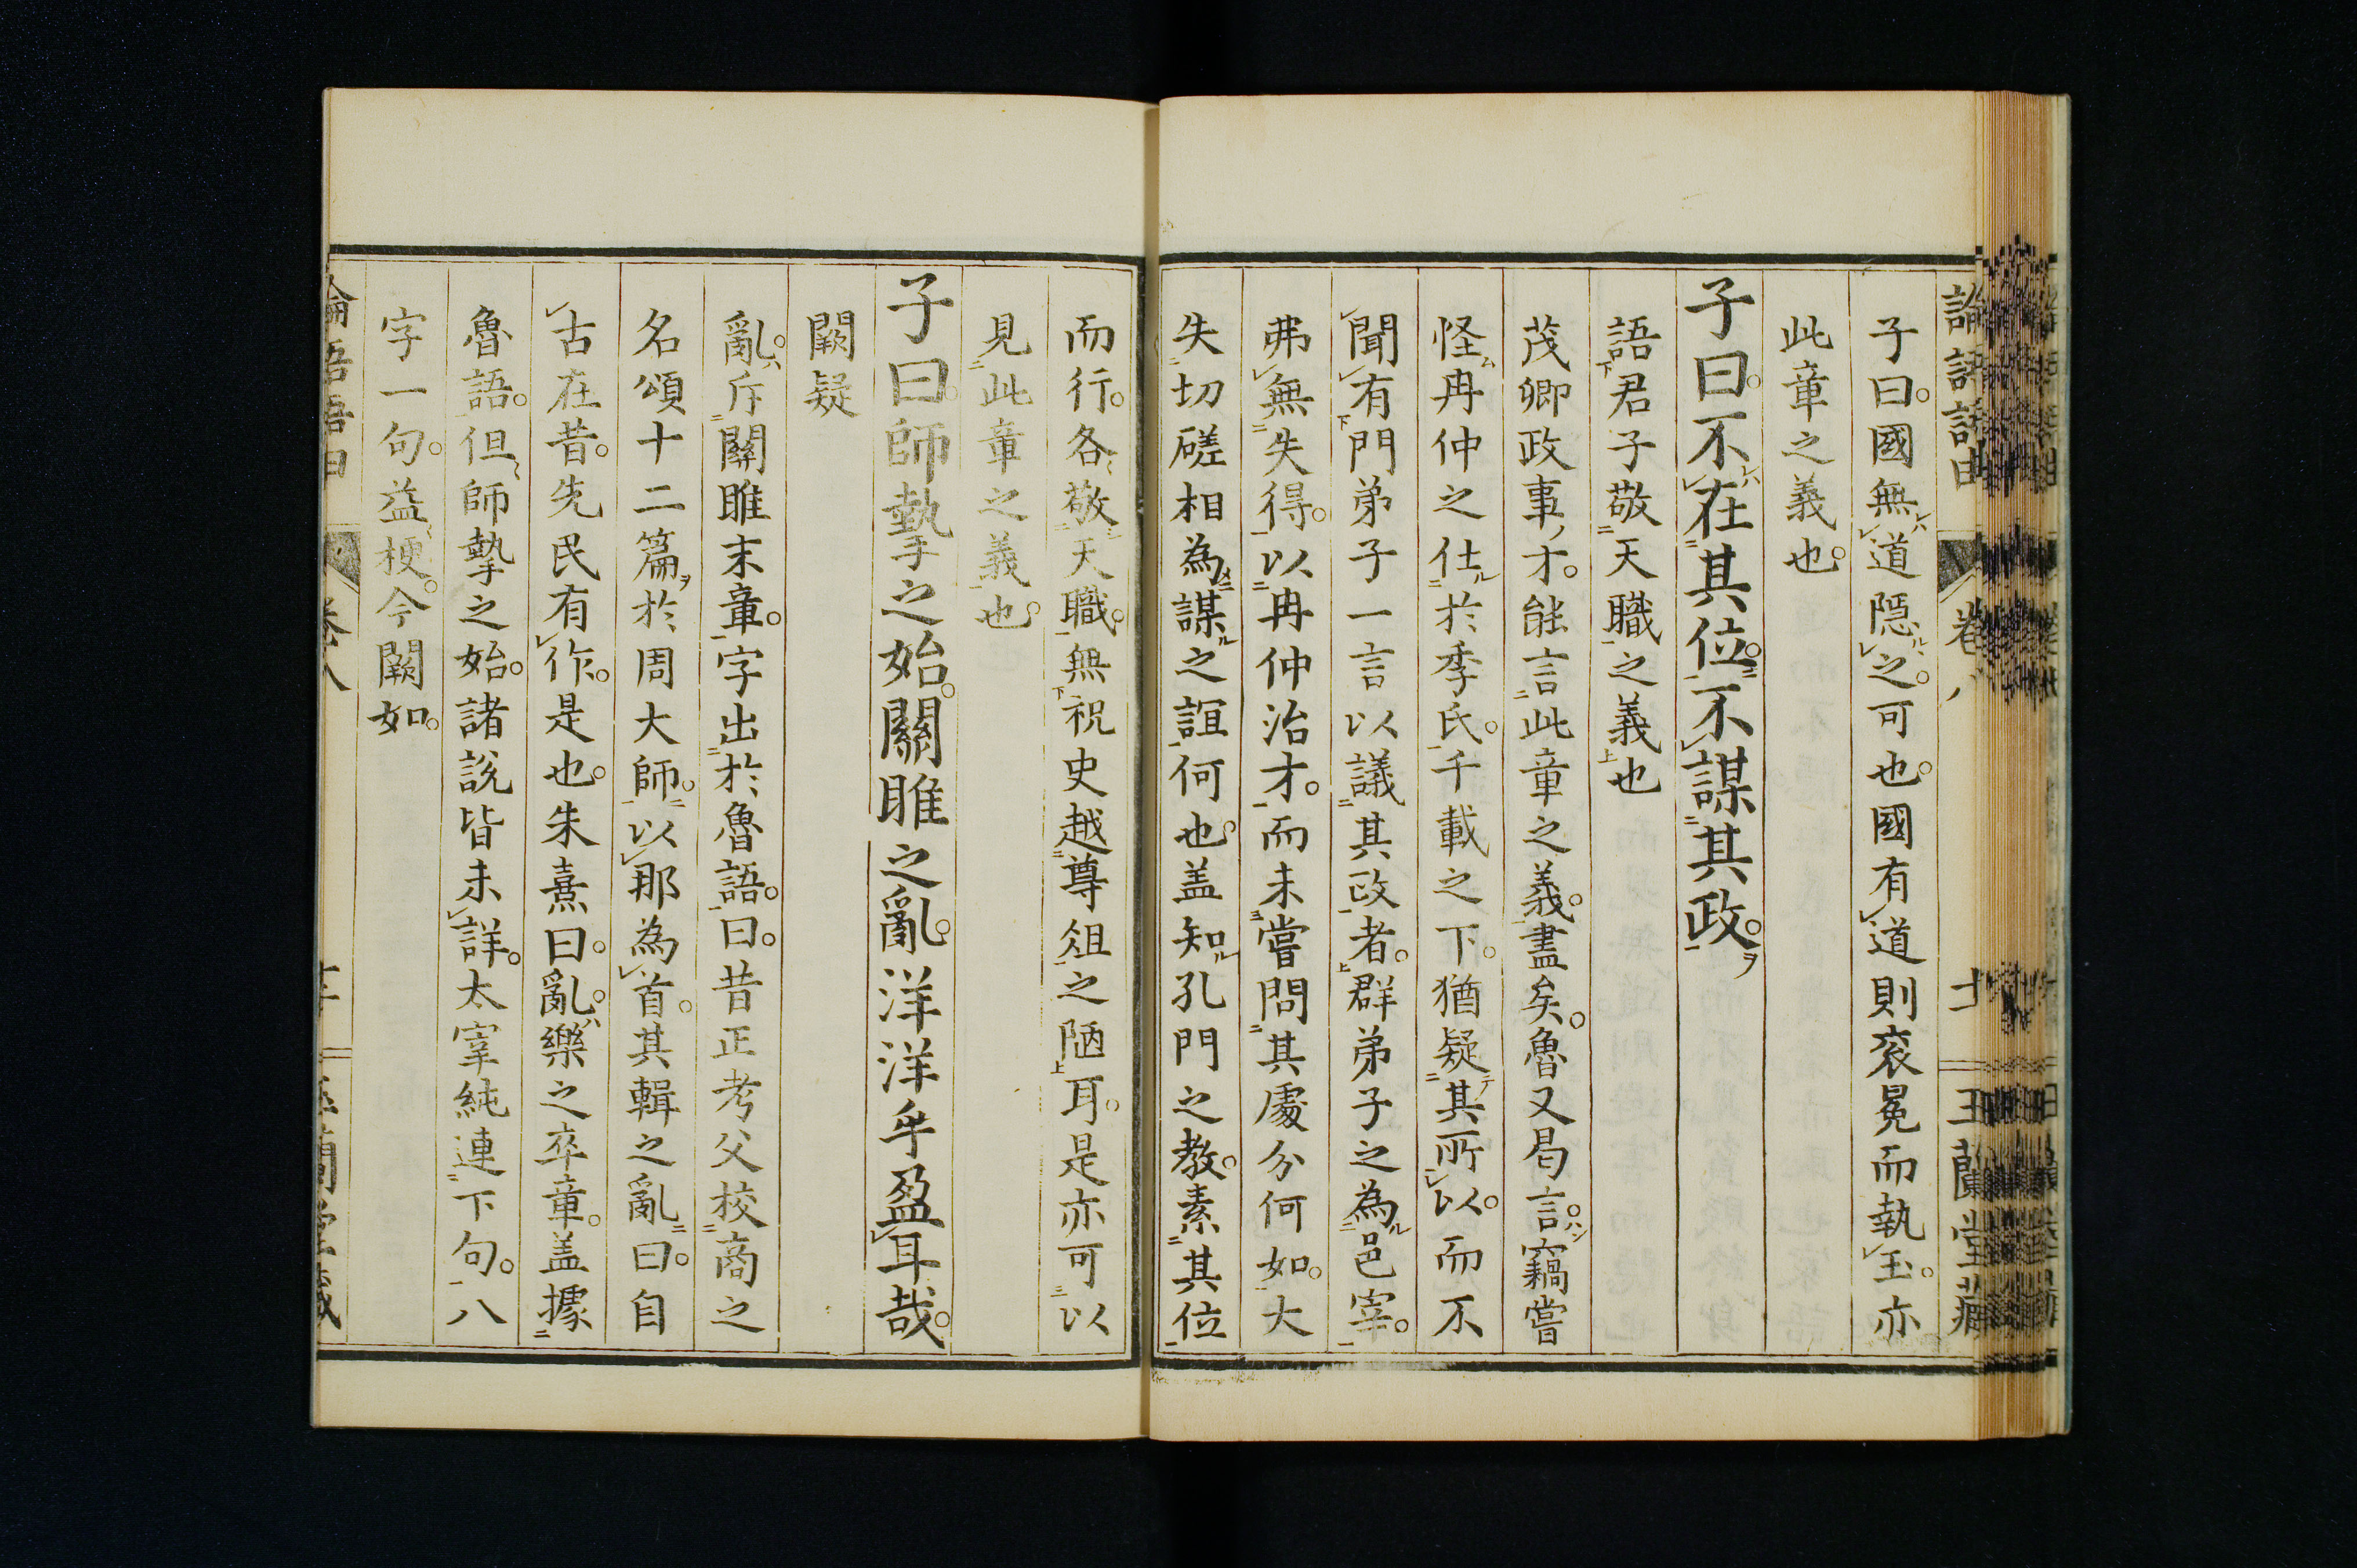 論語語由 卷八 十 玉蘭堂藏
子曰。國無道隱之。可也。國有道則袞冕而執玉。亦
此章之義也。
子曰。不在其位。不謀其政。
語君子敬天職之義也
茂卿政事才。能言此章之義。盡矣。魯又曷言。竊嘗
怪冉仲之仕於季氏。千載之下。猶疑其所以。而不
聞有門弟子一言以議其政者。群弟子之為邑宰。
弗無失得。以冉仲治才。而未嘗問其處分何如。大
失切磋相為謀之誼何也。盖知孔門之教。素其位
而行。各敬天職。無祝史越尊俎之陋耳。是亦可以
見此章之義也。
子曰。師摯之始。關雎之亂。洋洋乎盈耳哉。
闕疑
亂。斥關雎末章。字出於魯語。曰。昔正考父校商之
名頌十二篇於周大師。以那為首。其輯之亂曰。自
古在昔。先民有作。是也。朱熹曰。亂。樂之卒章。盖據
魯語。但師摯之始。諸說皆未詳。太宰純連下句。八
字一句。益梗。今闕如。
論語語由 卷八